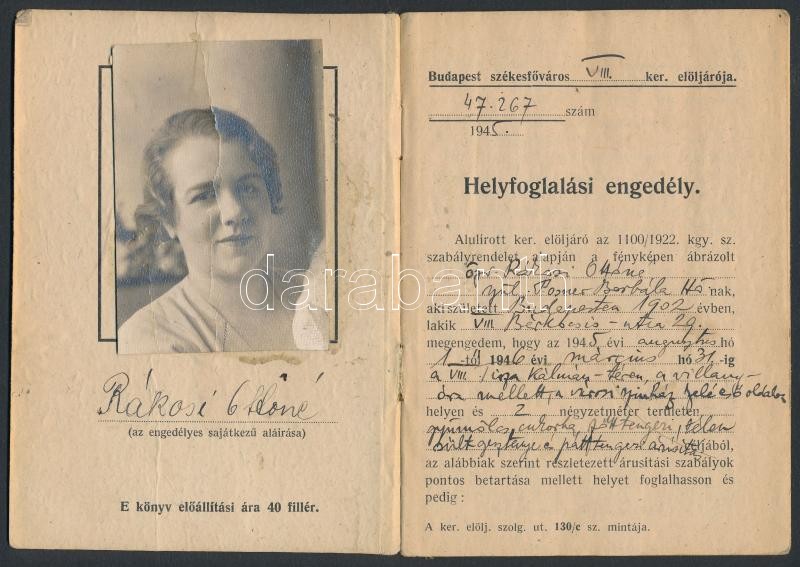 Rákosi Ottóné
(az engedélyes sajátkezű aláírása)
E könyv előállítási ára 40 fillér.
Budapest székesfőváros VIII. ker. elöljárója.
47.267 szám
1945.
Helyfoglalási engedély.
Alulírott ker. elöljáró az 1100/1922. kgy. sz.
szabályrendelet alapján a fényképen ábrázolt
özv Rákosi Ottóné
Posner Borbála nak,
aki született Budapesten 1902 évben,
lakik VIII Bérkocsis-utca 29.
megengedem, hogy az 1945 évi augusztus hó
1-től 1946 évi március hó 31-ig
a VIII. Tisza Kálmán-téren, a villany-
óra mellett a városi szinház felé eső oldalon
helyen és 2 négyzetméter területen
gyümölcs, cukorka, főtt tengeri, télen
sült gesztenye és pattt. tengeri árusítás céljából,
az alábbiak szerint részletezett árusítási szabályok
pontos betartása mellett helyet foglalhasson és
pedig :
A ker. előlj. szolg. ut. 130/c sz. mintája.
darabanth.com